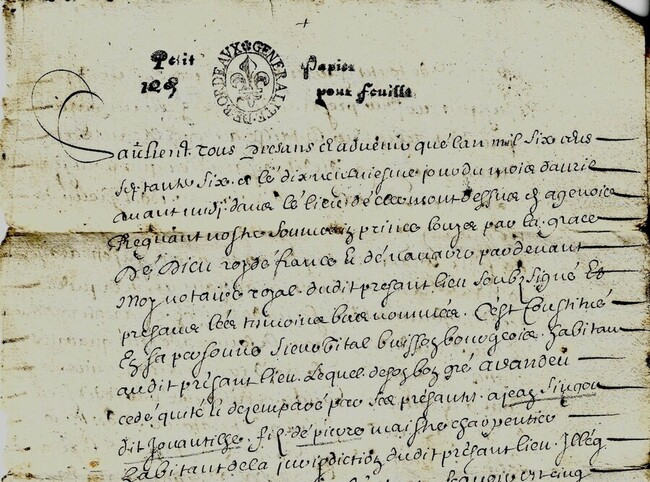 Petit Papier
12 d pour feuille
GENERALITE · DE · BORDEAVX
Saichent tous presans et advenir que lan mil six cens
septante six et le dix neufviesme jour du mois davril
avant midi dans le lieu de clermont dessus en agenois
Regnant nostre souverain prince louys par la grace
De Dieu roy de france et de navarre par devant
Moy notaire royal dudit presant lieu soubzsigné Et
presans les tesmoins bas nommés. C'est Constitué
En sa personne sieur vital buisson bourgeois habitan
audit presant lieu. Lequel de son bon gré a vandeu
cedé quité et desemparé par ses presants. a jean
dit fils de pierre maistre charpentier
habitant de la jurisdiction dudit presant lieu. Illég
cinq